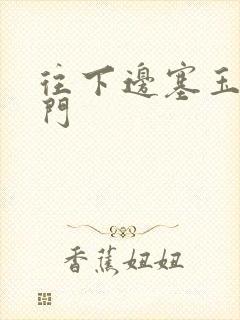 往下邊塞玉
門
香蕉妞妞